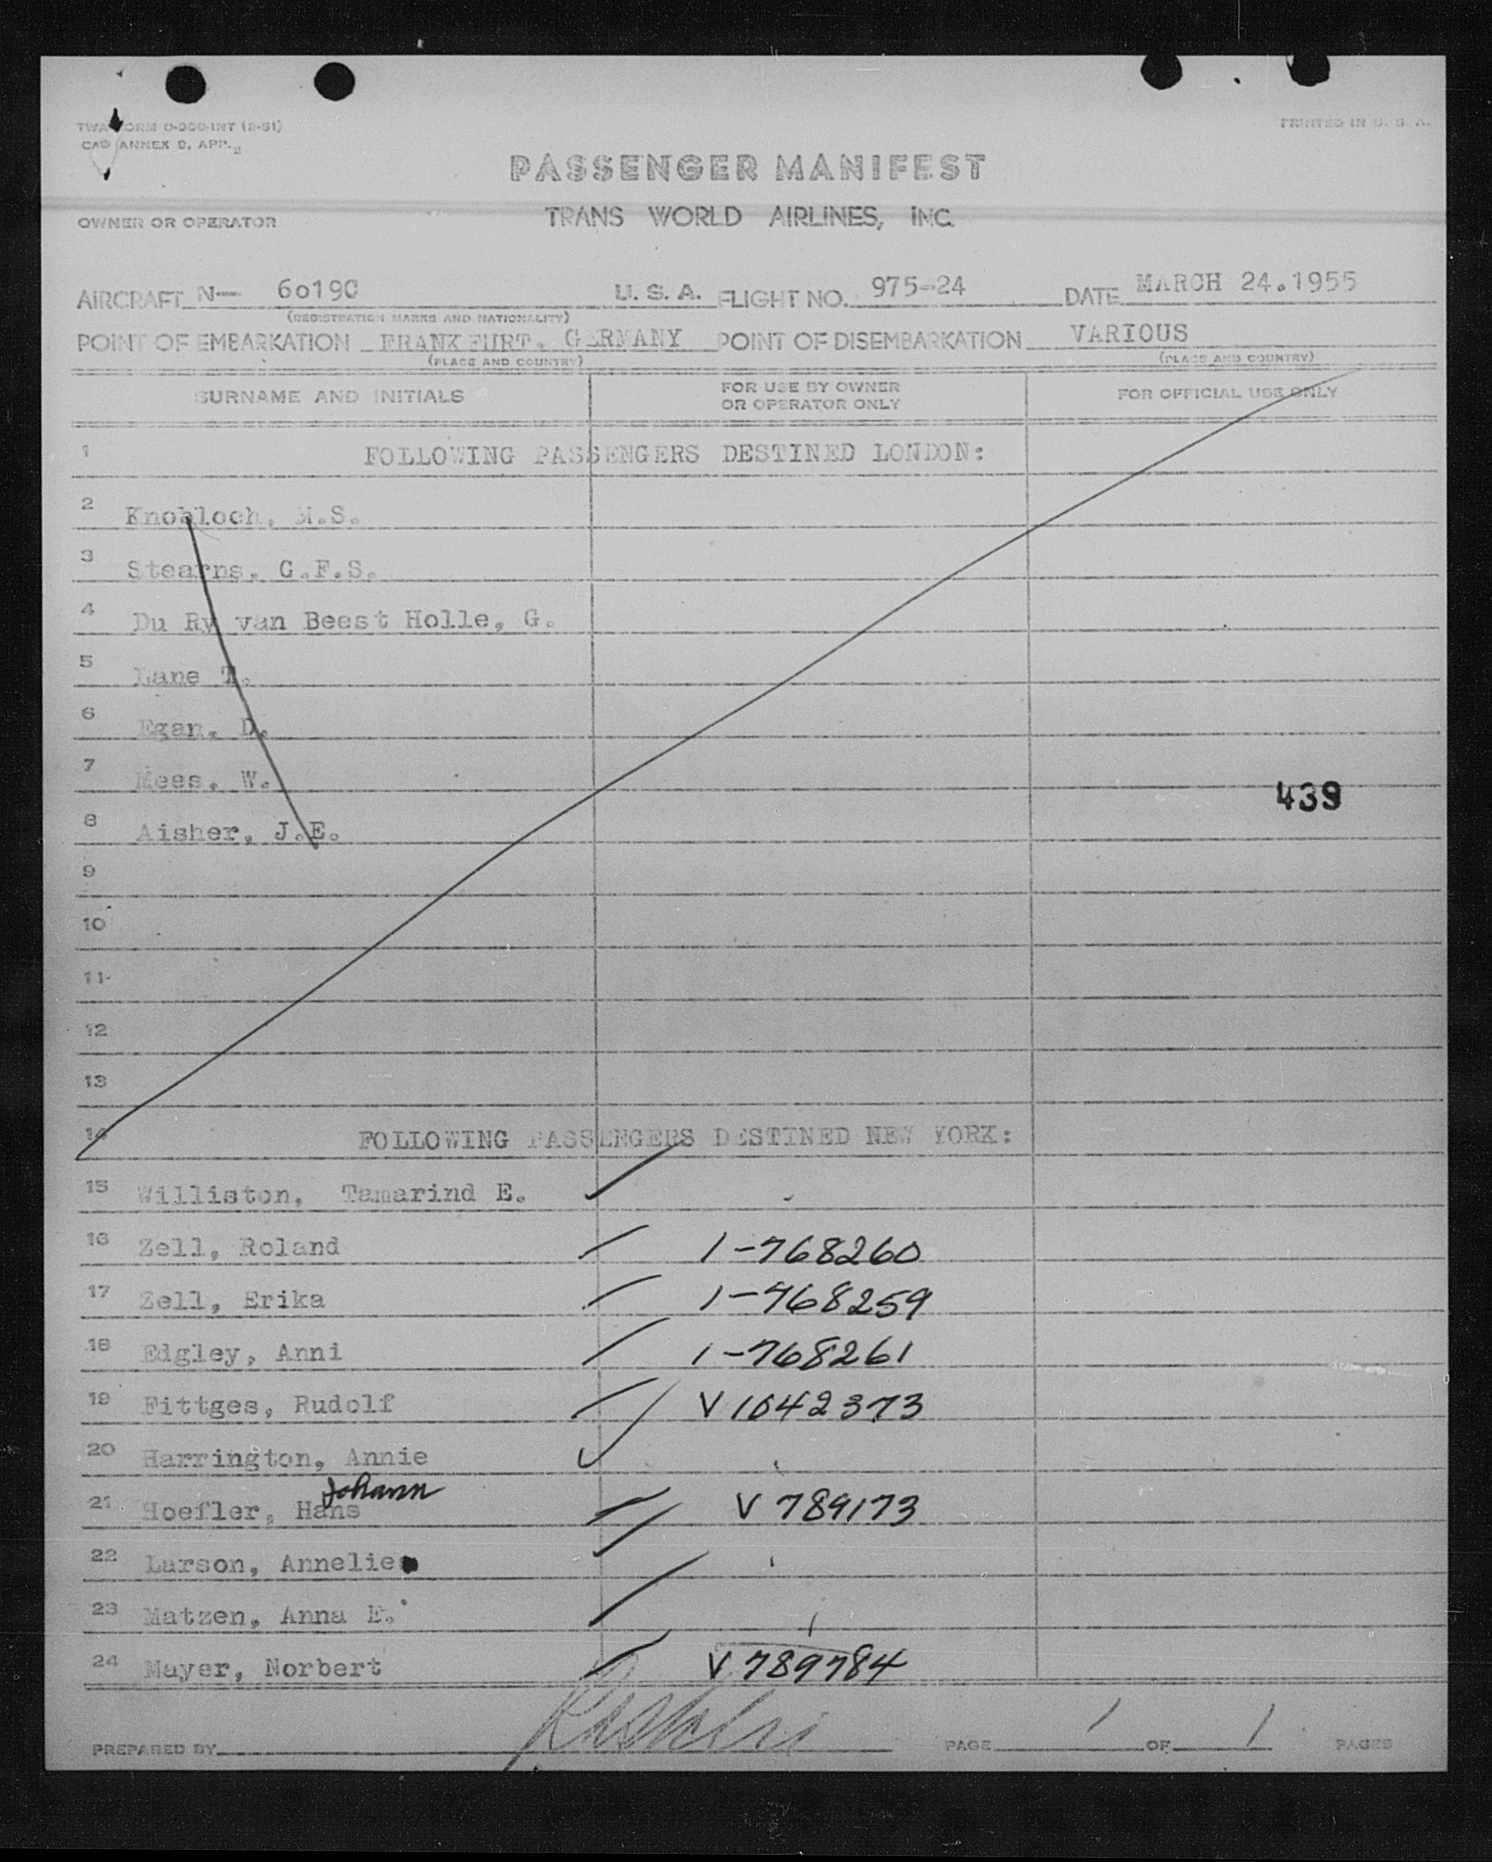 TWA FORM O-300-INT (2-51)
CAO ANNEX 9, APP. 2
PRINTED IN U. S. A.
PASSENGER MANIFEST
OWNER OR OPERATOR TRANS WORLD AIRLINES, INC.
AIRCRAFT N— 6019C U. S. A. FLIGHT NO. 975-24 DATE MARCH 24.1955
(REGISTRATION MARKS AND NATIONALITY)
POINT OF EMBARKATION FRANKFURT, GERMANY POINT OF DISEMBARKATION VARIOUS
(PLACE AND COUNTRY) (PLACE AND COUNTRY)
SURNAME AND INITIALS FOR USE BY OWNER OR OPERATOR ONLY FOR OFFICIAL USE ONLY
1 FOLLOWING PASSENGERS DESTINED LONDON:
2 Knobloch, M.S.
3 Stearns, G.F.S.
4 Du Ry van Beest Holle, G.
5 Lane T.
6 Egan, D.
7 Mees, W.
439
8 Aisher, J.E.
9
10
11
12
13
14 FOLLOWING PASSENGERS DESTINED NEW YORK:
15 Williston, Tamarind E.
16 Zell, Roland 1-768260
17 Zell, Erika 1-768259
18 Edgley, Anni 1-768261
19 Fittges, Rudolf V 1042373
20 Harrington, Annie
Johann
21 Hoefler, Hans V 789173
22 Larson, Annelie
23 Matzen, Anna E.
24 Mayer, Norbert V 789784
PREPARED BY PAGE 1 OF 1 PAGES